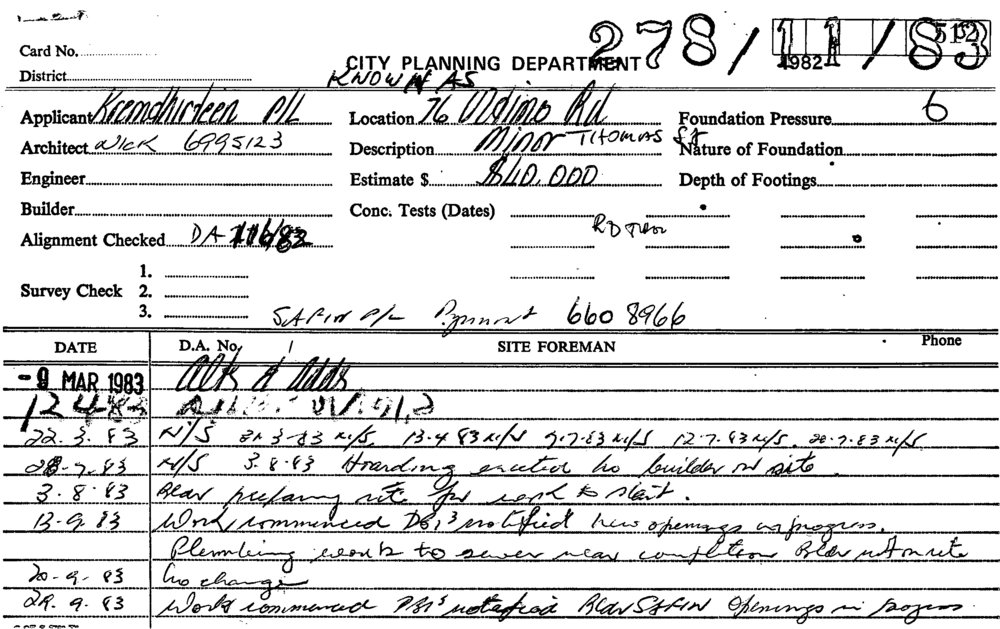 278/11/83
Card No. 512
CITY PLANNING DEPARTMENT 1982
District KNOWN AS
Applicant P/L Location 76 Ultimo Rd Foundation Pressure 6
Architect NICK 6995123 Description Minor THOMAS ST Nature of Foundation
Engineer Estimate $ $40,000 Depth of Footings
Builder Conc. Tests (Dates)
Alignment Checked DA
1.
Survey Check 2.
3. SAFIN P/L Pyrmont 660 8966
DATE D.A. No. SITE FOREMAN Phone
-9 MAR 1983 Alts & Adds
12 4 83
22. 3. 83 N/S 3-83 N/S. 13-4 83 N/S 9-7-83 N/S 12-7.83 N/S. 7.83 N/S
28-7.83 N/S 3.8.83 Hoarding erected no builder on site.
3.8.83 Bldr preparing site for work to start.
13-9.83 Work commenced DBI's notified new openings in progress.
Plumbing work to sewer near completion Bldr not on site
20-9-83 No change
29.9.83 Work commenced DBI's notified Bldr SAFIN Openings in progress.